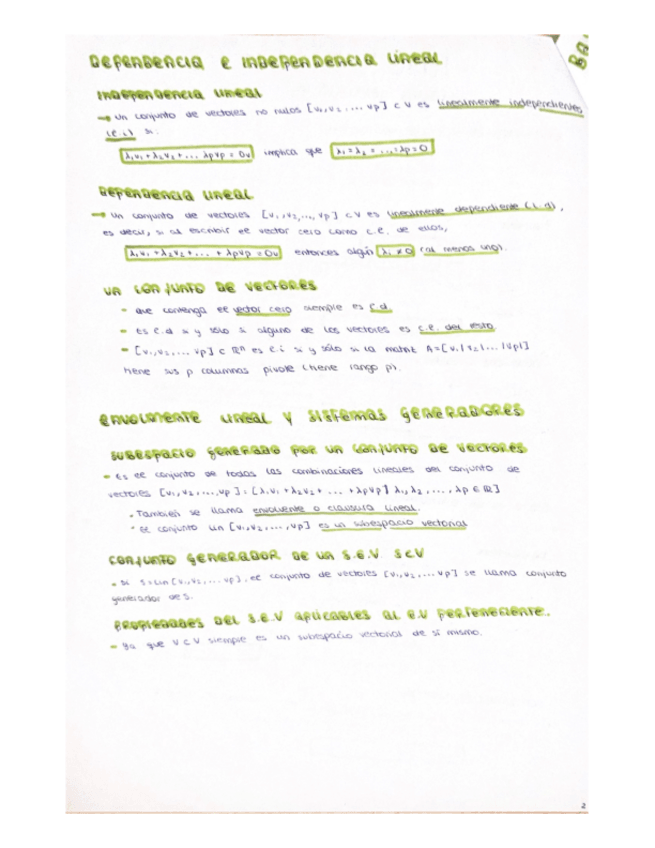 DEPENDENCIA E INDEPENDENCIA LINEAL
BA
INDEPENDENCIA LINEAL
→ Un conjunto de vectores no nulos [v₁,v₂ .... vp] ⊂ V es linealmente independientes
(l.i) si:
λ₁v₁ + λ₂v₂ + ... λpvp = 0v implica que λ₁ = λ₂ = ... = λp = 0
DEPENDENCIA LINEAL
→ Un conjunto de vectores [v₁,v₂,..., vp] ⊂ V es linealmente dependiente (l.d),
es decir, si al escribir el vector cero como c.l. de ellos,
λ₁v₁ + λ₂v₂ + ... + λpvp = 0v entonces algún λᵢ ≠ 0 (al menos uno).
UN CONJUNTO DE VECTORES
- Que contenga el vector cero siempre es l.d.
- Es l.d si y sólo si alguno de los vectores es c.l. del resto.
- [v₁,v₂,... vp] ⊂ ℝⁿ es l.i si y sólo si la matriz A=[v₁|v₂|...|vp]
tiene sus p columnas pivote (tiene rango p).
ENVOLVENTE LINEAL Y SISTEMAS GENERADORES
SUBESPACIO GENERADO POR UN CONJUNTO DE VECTORES
- Es el conjunto de todas las combinaciones lineales del conjunto de
vectores [v₁,v₂,...,vp] = [λ₁v₁ + λ₂v₂ + ... + λpvp | λ₁,λ₂,..., λp ∈ ℝ]
• También se llama envolvente o clausura lineal.
• El conjunto lin [v₁,v₂,...,vp] es un subespacio vectorial
CONJUNTO GENERADOR DE UN S.E.V. S⊂V
• Si S=Lin [v₁,v₂,... vp], el conjunto de vectores [v₁,v₂,... vp] se llama conjunto
generador de S.
PROPIEDADES DEL S.E.V APLICABLES AL E.V PERTENECIENTE.
- Ya que V ⊂ V siempre es un subespacio vectorial de sí mismo.
2